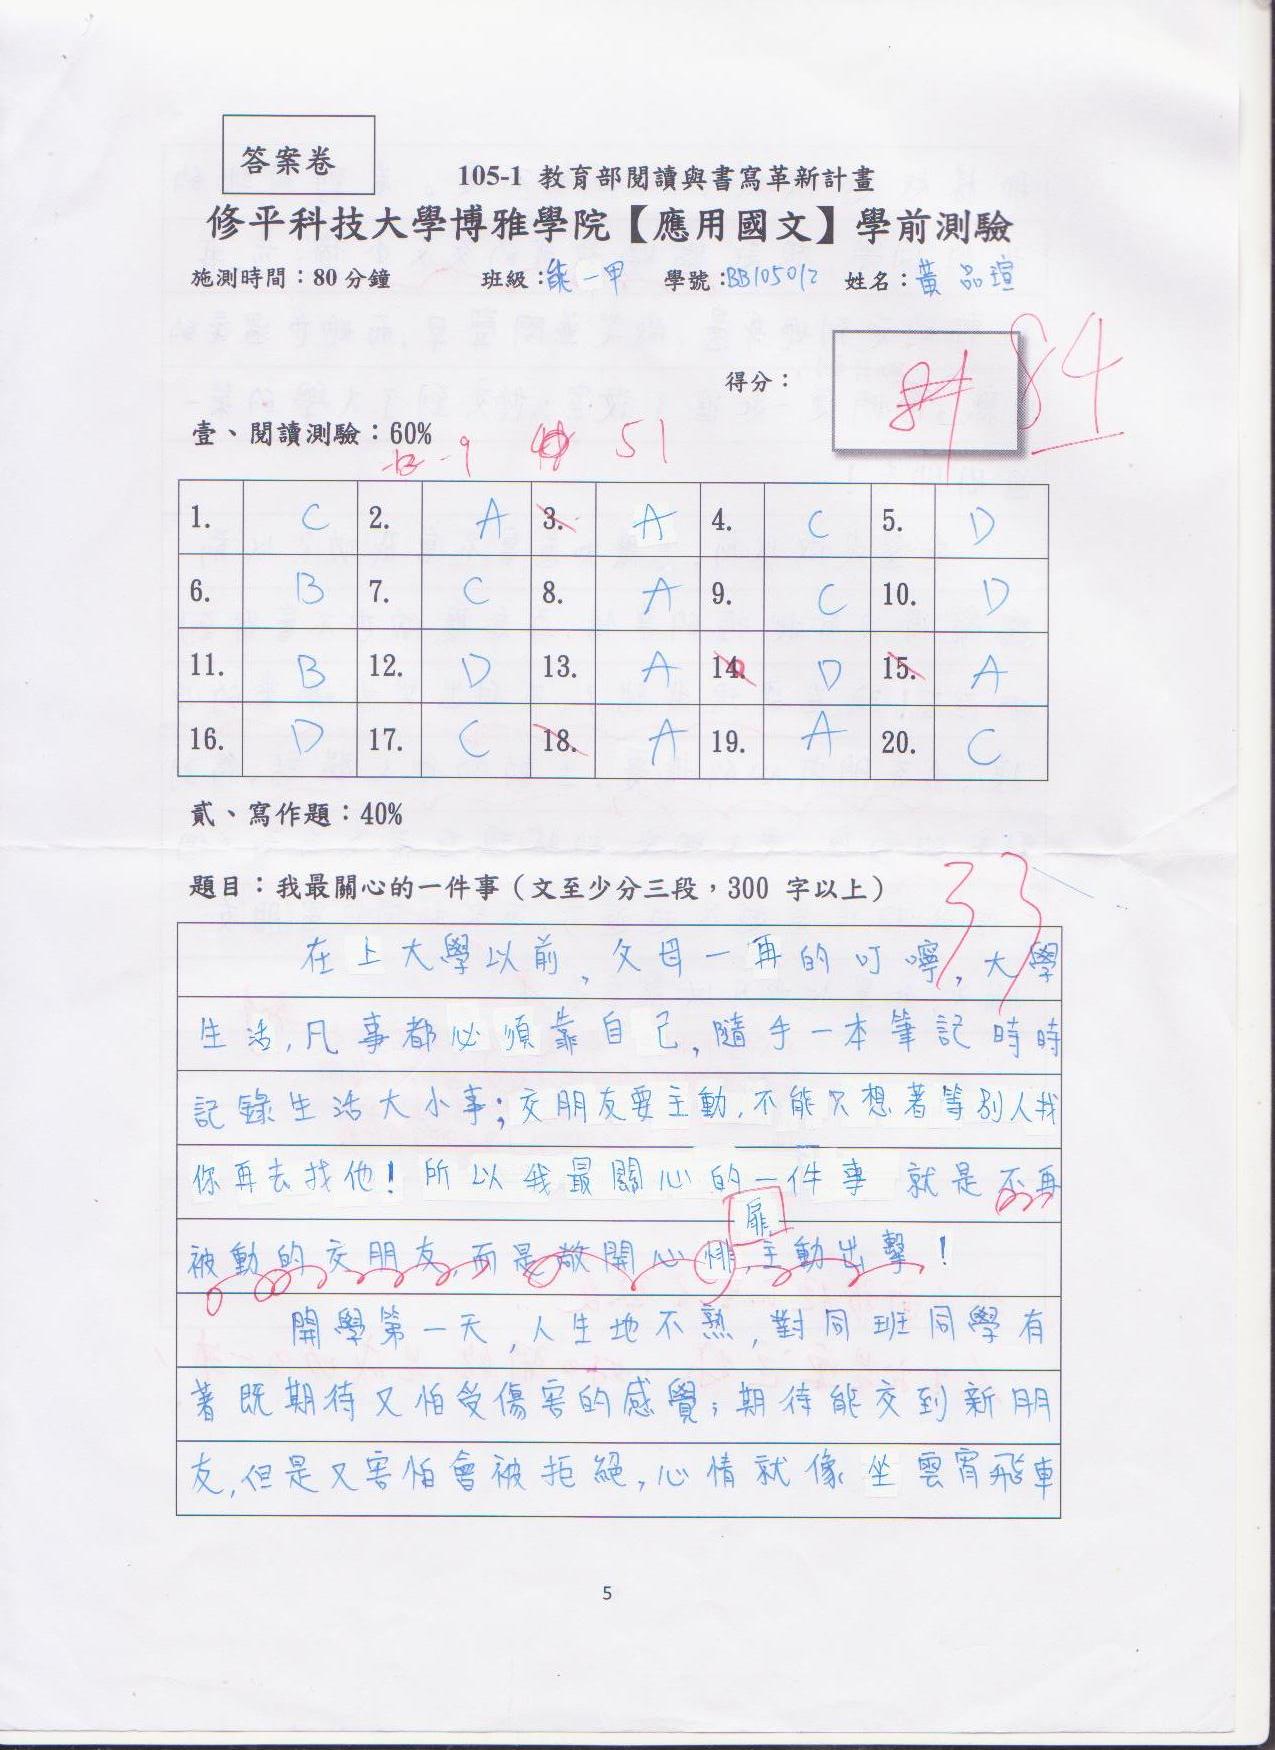 答案卷
105-1 教育部閱讀與書寫革新計畫
修平科技大學博雅學院【應用國文】學前測驗
施測時間：80 分鐘 班級：能一甲 學號：BB105012 姓名：黃品瑄
得分： 84
壹、閱讀測驗：60%
-9 51
1. C 2. A 3. A 4. C 5. D
6. B 7. C 8. A 9. C 10. D
11. B 12. D 13. A 14. D 15. A
16. D 17. C 18. A 19. A 20. C
貳、寫作題：40%
33
題目：我最關心的一件事（文至少分三段，300 字以上）
在上大學以前，父母一再的叮嚀，大學
生活，凡事都必須靠自己，隨手一本筆記時時
記錄生活大小事；交朋友要主動，不能只想著等別人找
你再去找他！所以我最關心的一件事 就是不再
扉
被動的交朋友，而是敞開心悱，主動出擊！
開學第一天，人生地不熟，對同班同學有
著既期待又怕受傷害的感覺；期待能交到新朋
友，但是又害怕會被拒絕，心情就像坐雲宵飛車
5